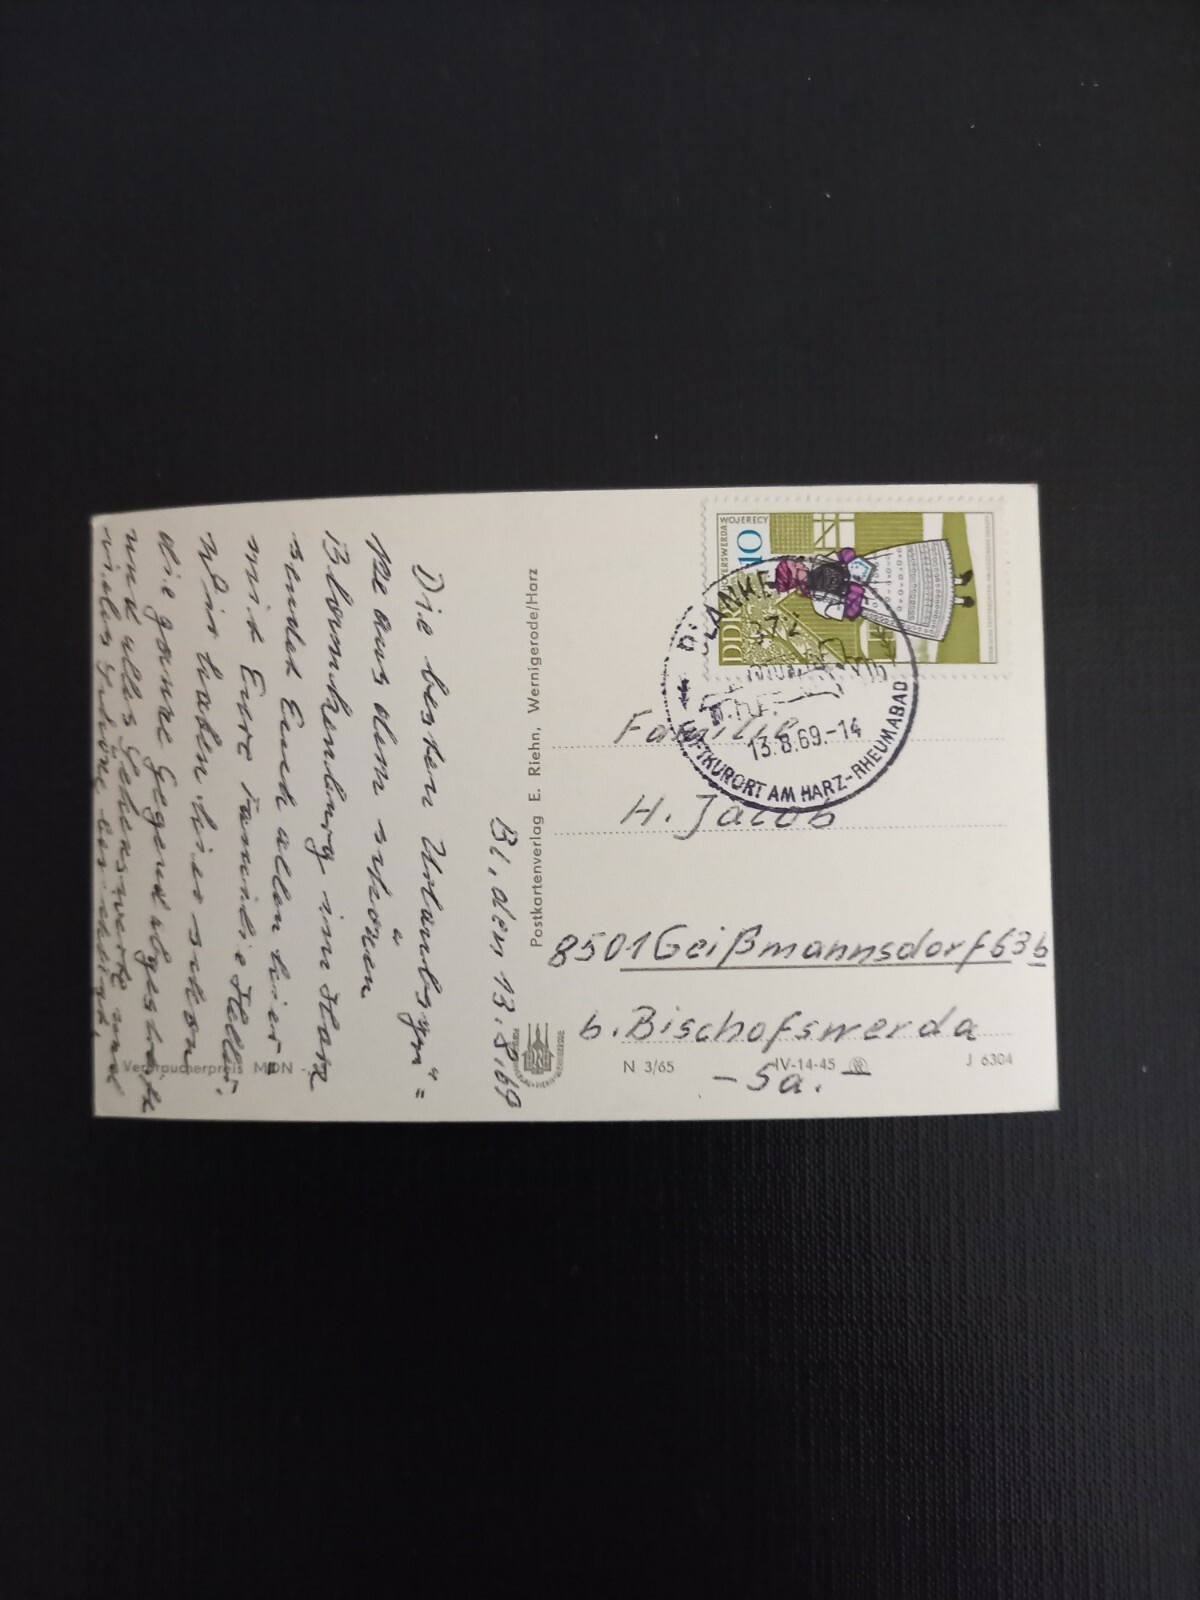 Bl, den 13.8.69
Die besten Urlaubsgrü=
ße aus dem schönen
Blankenburg im Harz
sendet Euch allen hier=
mit Eure Familie Heller.
Wir haben hier schon
die ganze Gegend abgeklappt
und alles Sehenswerte und
vieles Schöne besichtigt.
Verbraucherpreis MDN -,
Postkartenverlag E. Riehn, Wernigerode/Harz
DDR
10
HOYERSWERDA WOJERECY
BLANKE
372
LUFTKURORT AM HARZ-RHEUMABAD
13.8.69.-14
Familie
H. Jacob
8501 Geißmannsdorf 63b
b. Bischofswerda
- Sa. -
N 3/65
IV-14-45
J 6304